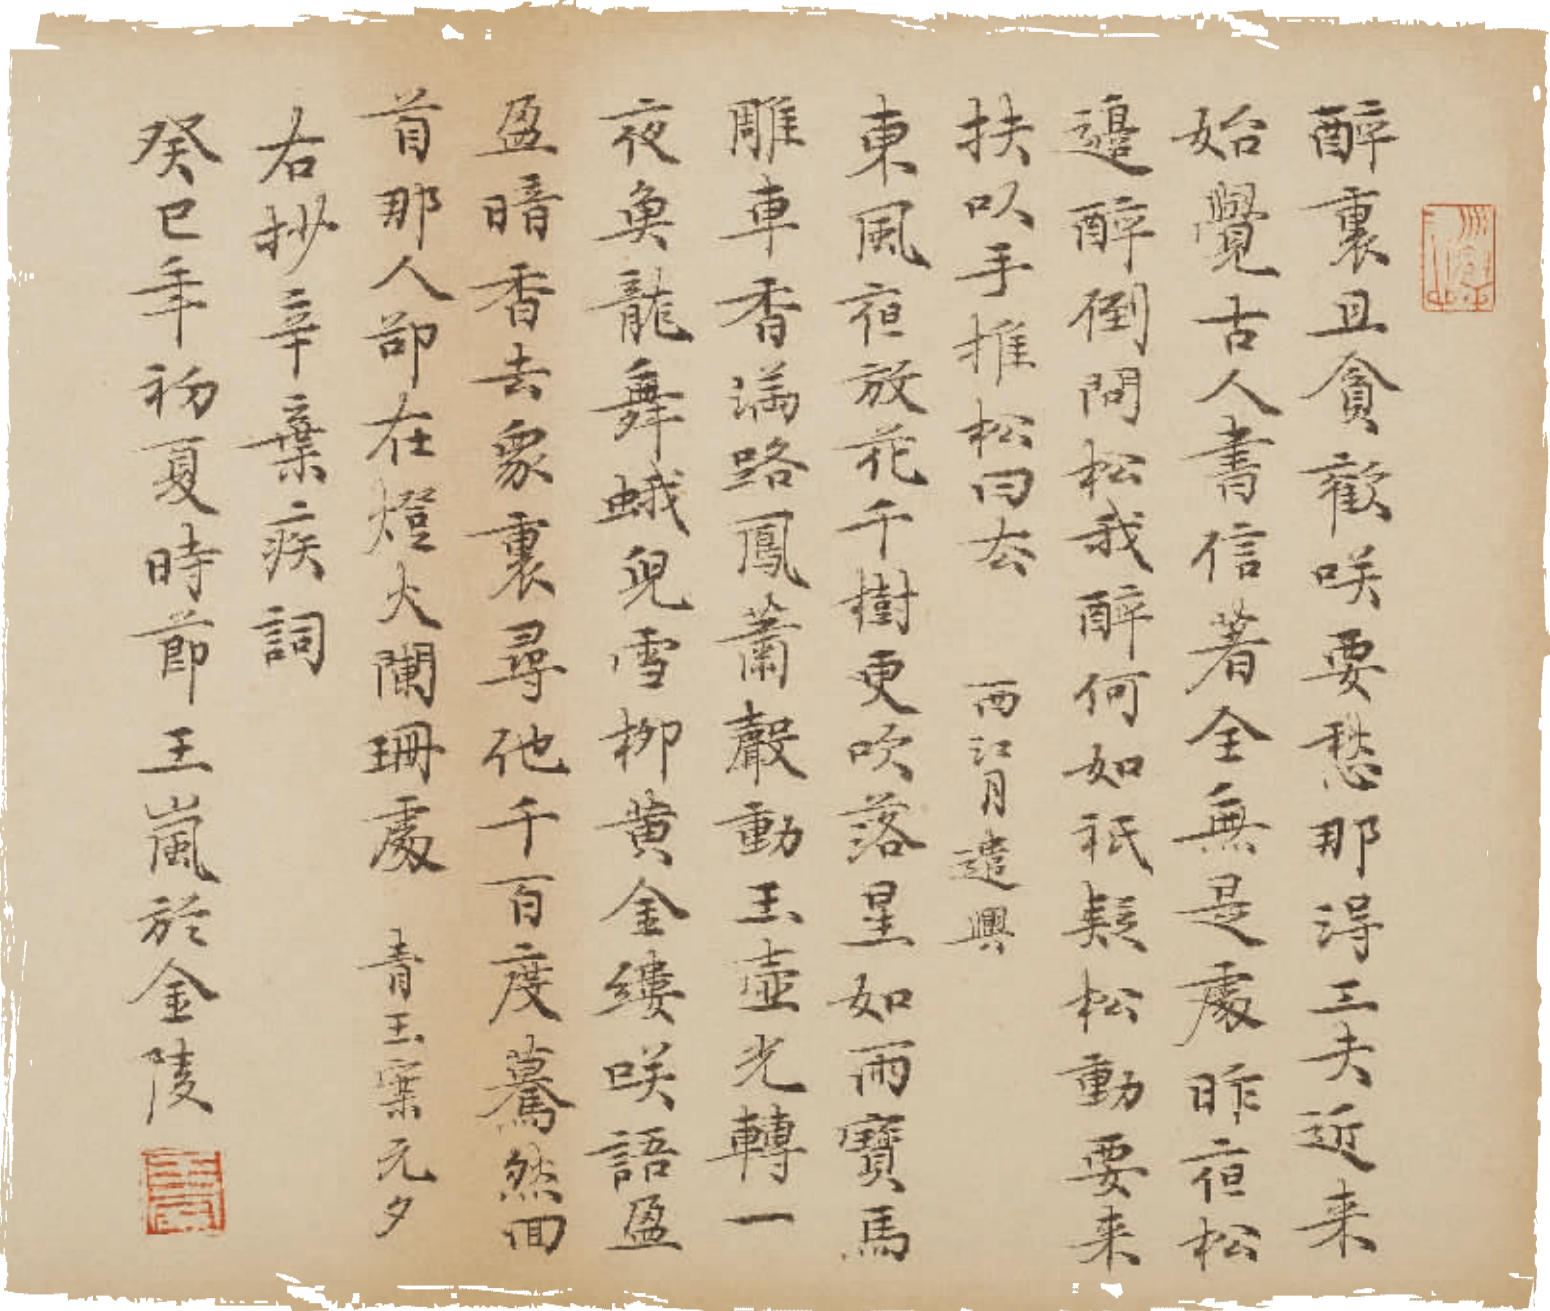 醉裏且貪歡咲要愁那得工夫近来
始覺古人書信著全無是處昨夜松
邊醉倒問松我醉何如祇疑松動要来
扶以手推松曰去 西江月遣興
東風夜放花千樹更吹落星如雨寶馬
雕車香満路鳳蕭聲動玉壺光轉一
夜魚龍舞蛾兒雪柳黄金縷咲語盈
盈暗香去衆裏尋他千百度驀然回
首那人卻在燈火闌珊處 青玉案元夕
右抄辛棄疾詞
癸巳年初夏時節王嵐於金陵